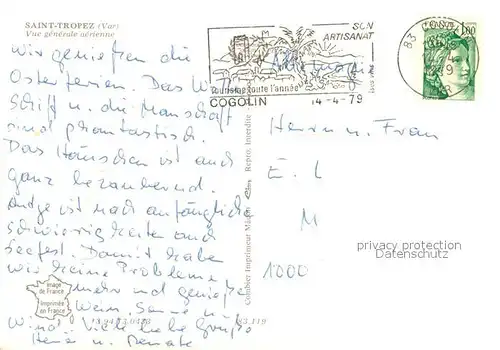 SAINT-TROPEZ (Var)
Vue générale aérienne
Wir genießen die
Osterferien. Das
Schiff u. die Manschaft
sind phantastisch.
Das Häuschen ist auch
ganz bezaubernd.
ist nach anfänglichen
Schwierigkeiten auch
seefest. Damit habe
wir keine Probleme
mehr und genießen
Wein, Sonne u.
Wind. Viele liebe Grüße
u. Renate
SON
ARTISANAT
Tourisme toute l'année
COGOLIN 14-4-79
83 COGOLIN
1,00
Herrn u. Frau
E. L
M
1000
privacy protection
Datenschutz
Combier Imprimeur Mâcon
Repro. Interdite
Image
de France
Imprimée
en France
83.119